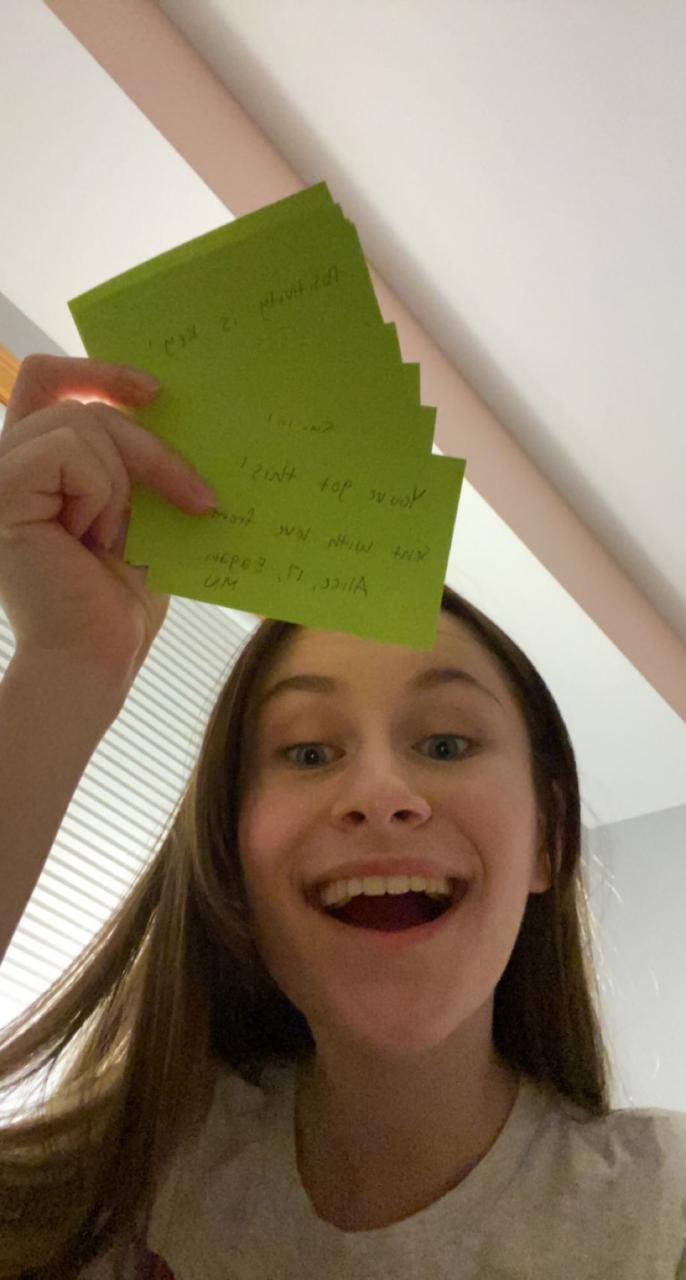 Positivity is key!
You've got this!
Sent with love from
Alice, 17, Eagan,
MN